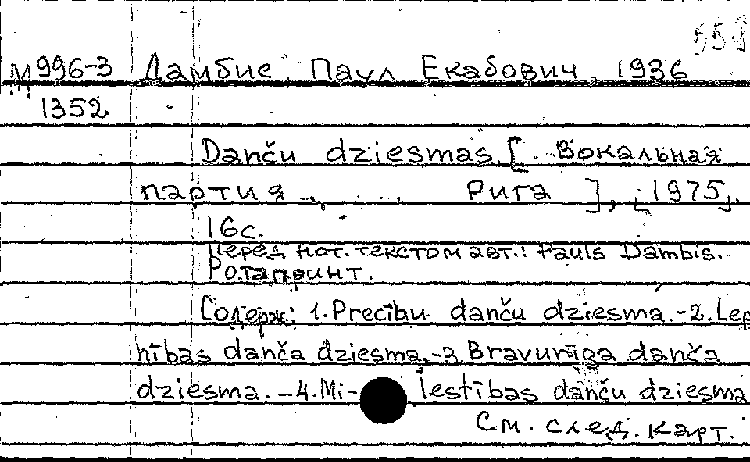 М 996-3 Дамбис, Паул Екабович, 1936
1352 -
Danču dziesmas. [Вокальная
партия. Рига], [1975].
16 с.
Перед нот. текстом авт.: Pauls Dambis.
Ротапринт.
Содерж: 1. Precību danču dziesma. - 2. Lep
nības danča dziesma. - 3. Bravurīga danča
dziesma. - 4. Mi- lestības danču dziesma
См. след. карт.